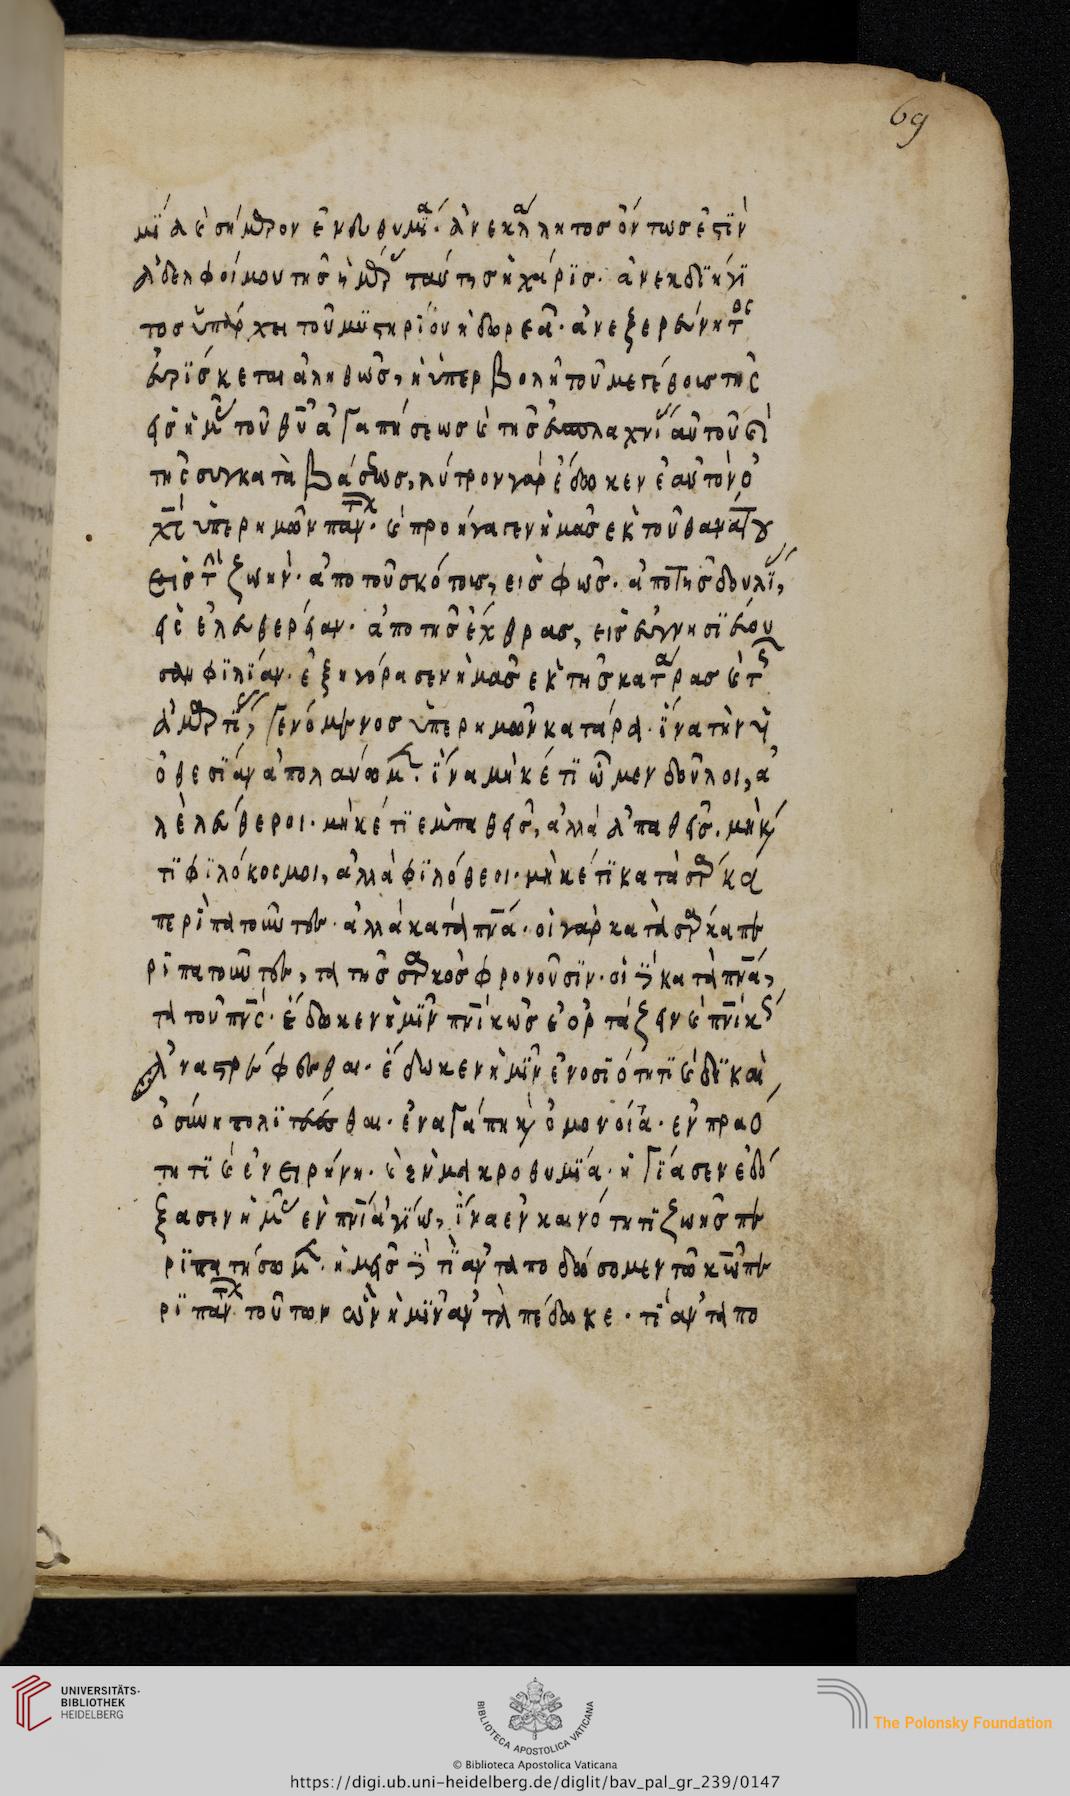 69
μία καὶ σήμερον ἐνθυμία. ἀνεκλάλητος ὄντως ἐστὶν
ἀδελφοί μου τῆς ἡμέρας ταύτης ἡ χάρις. ἀνεκδιήγη
τος ὑπάρχει τοῦ μυστηρίου ἡ δωρεά. ἀνεξερεύνητος
εὑρίσκεται ἀληθῶς, ἡ ὑπερβολὴ τοῦ μεγέθους τῆς
εἰς ἡμᾶς τοῦ θυ ἀγαπήσεως καὶ τῆς εὐσπλαχνίας αὐτοῦ καὶ
τῆς συγκαταβάσεως, λύτρον γὰρ ἔδωκεν ἑαυτὸν ὁ
χς ὑπὲρ ἡμῶν πάντων. καὶ προήγαγεν ἡμᾶς ἐκ τοῦ θανάτου
εἰς τὴν ζωήν. ἀπὸ τοῦ σκότους, εἰς φῶς. ἀπὸ τῆς δουλείας,
εἰς ἐλευθερίαν. ἀπὸ τῆς ἔχθρας, εἰς
φιλίαν. ἐξηγόρασεν ἡμᾶς ἐκ τῆς κατάρας καὶ τῆς
ἁμαρτίας, γενόμενος ὑπὲρ ἡμῶν κατάρα. ἵνα τὴν υἱ
οθεσίαν ἀπολαύωμεν. ἵνα μηκέτι ὦμεν δοῦλοι, ἀ
λλ' ἐλεύθεροι. μηκέτι ἐμπαθεῖς, ἀλλὰ ἀπαθεῖς. μηκέ
τι φιλόκοσμοι, ἀλλὰ φιλόθεοι. μηκέτι κατὰ σάρκα
περιπατοῦντες. ἀλλὰ κατὰ πνα. οἱ γὰρ κατὰ σάρκα πε
ριπατοῦντες, τὰ τῆς σαρκὸς φρονοῦσιν. οἱ δὲ κατὰ πνα,
τὰ τοῦ πνς. ἔδωκεν ἡμῖν πνικῶς ἑορτάζειν καὶ πνικῶς
ἀναστρέφεσθαι. ἔδωκεν ἡμῖν ἐν ὁσιότητι καὶ δικαι
οσύνη πολιτεύεσθαι. ἐν ἀγάπη καὶ ὁμονοία. ἐν πραό
τητι καὶ ἐν εἰρήνη. καὶ ἐν μακροθυμία. ἡγίασεν ἐδό
ξασεν ἡμᾶς ἐν πνι ἁγίω, ἵνα ἐν καινότητι ζωῆς πε
ριπατήσωμεν. ἡμεῖς δὲ τί ἀνταποδώσομεν τῶ κω πε
ρὶ πάντων τούτων ὧν ἡμῖν ἀνταπέδωκε. τί ἀνταπο
UNIVERSITÄTS-
BIBLIOTHEK
HEIDELBERG
BIBLIOTECA APOSTOLICA VATICANA
The Polonsky Foundation
© Biblioteca Apostolica Vaticana
https://digi.ub.uni-heidelberg.de/diglit/bav_pal_gr_239/0147